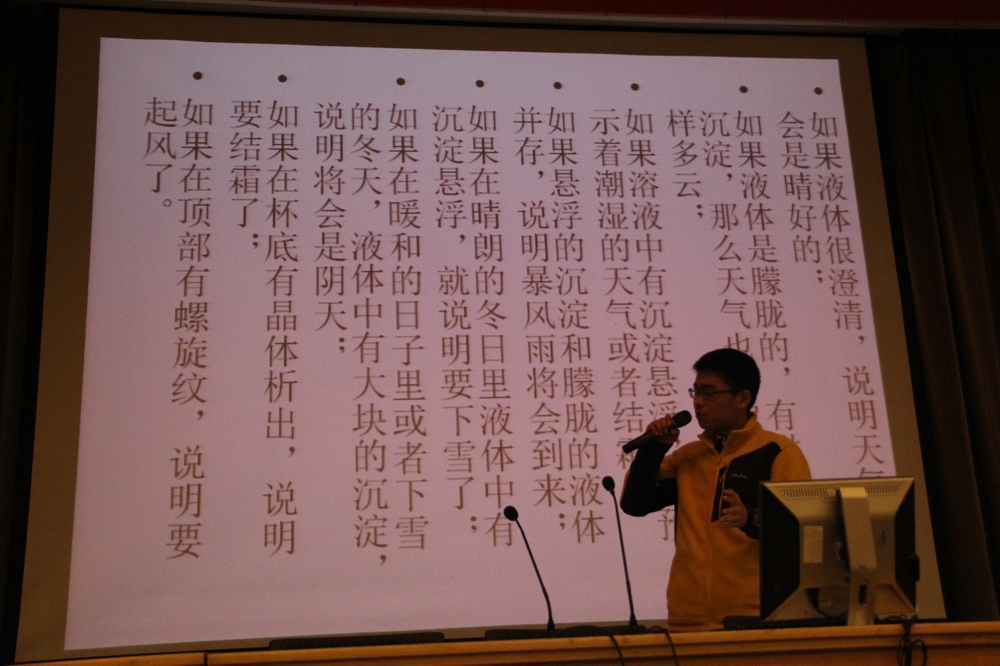 如果液体很澄清，说明天气
会是晴好的；
如果液体是朦胧的，有
沉淀，那么天气也
样多云；
如果溶液中有沉淀悬浮 预
示着潮湿的天气或者结霜
如果悬浮的沉淀和朦胧的液体
并存，说明暴风雨将会到来；
如果在晴朗的冬日里液体中有
沉淀悬浮，就说明要下雪了；
如果在暖和的日子里或者下雪
的冬天，液体中有大块的沉淀，
说明将会是阴天；
如果在杯底有晶体析出，说明
要结霜了；
如果在顶部有螺旋纹，说明要
起风了。